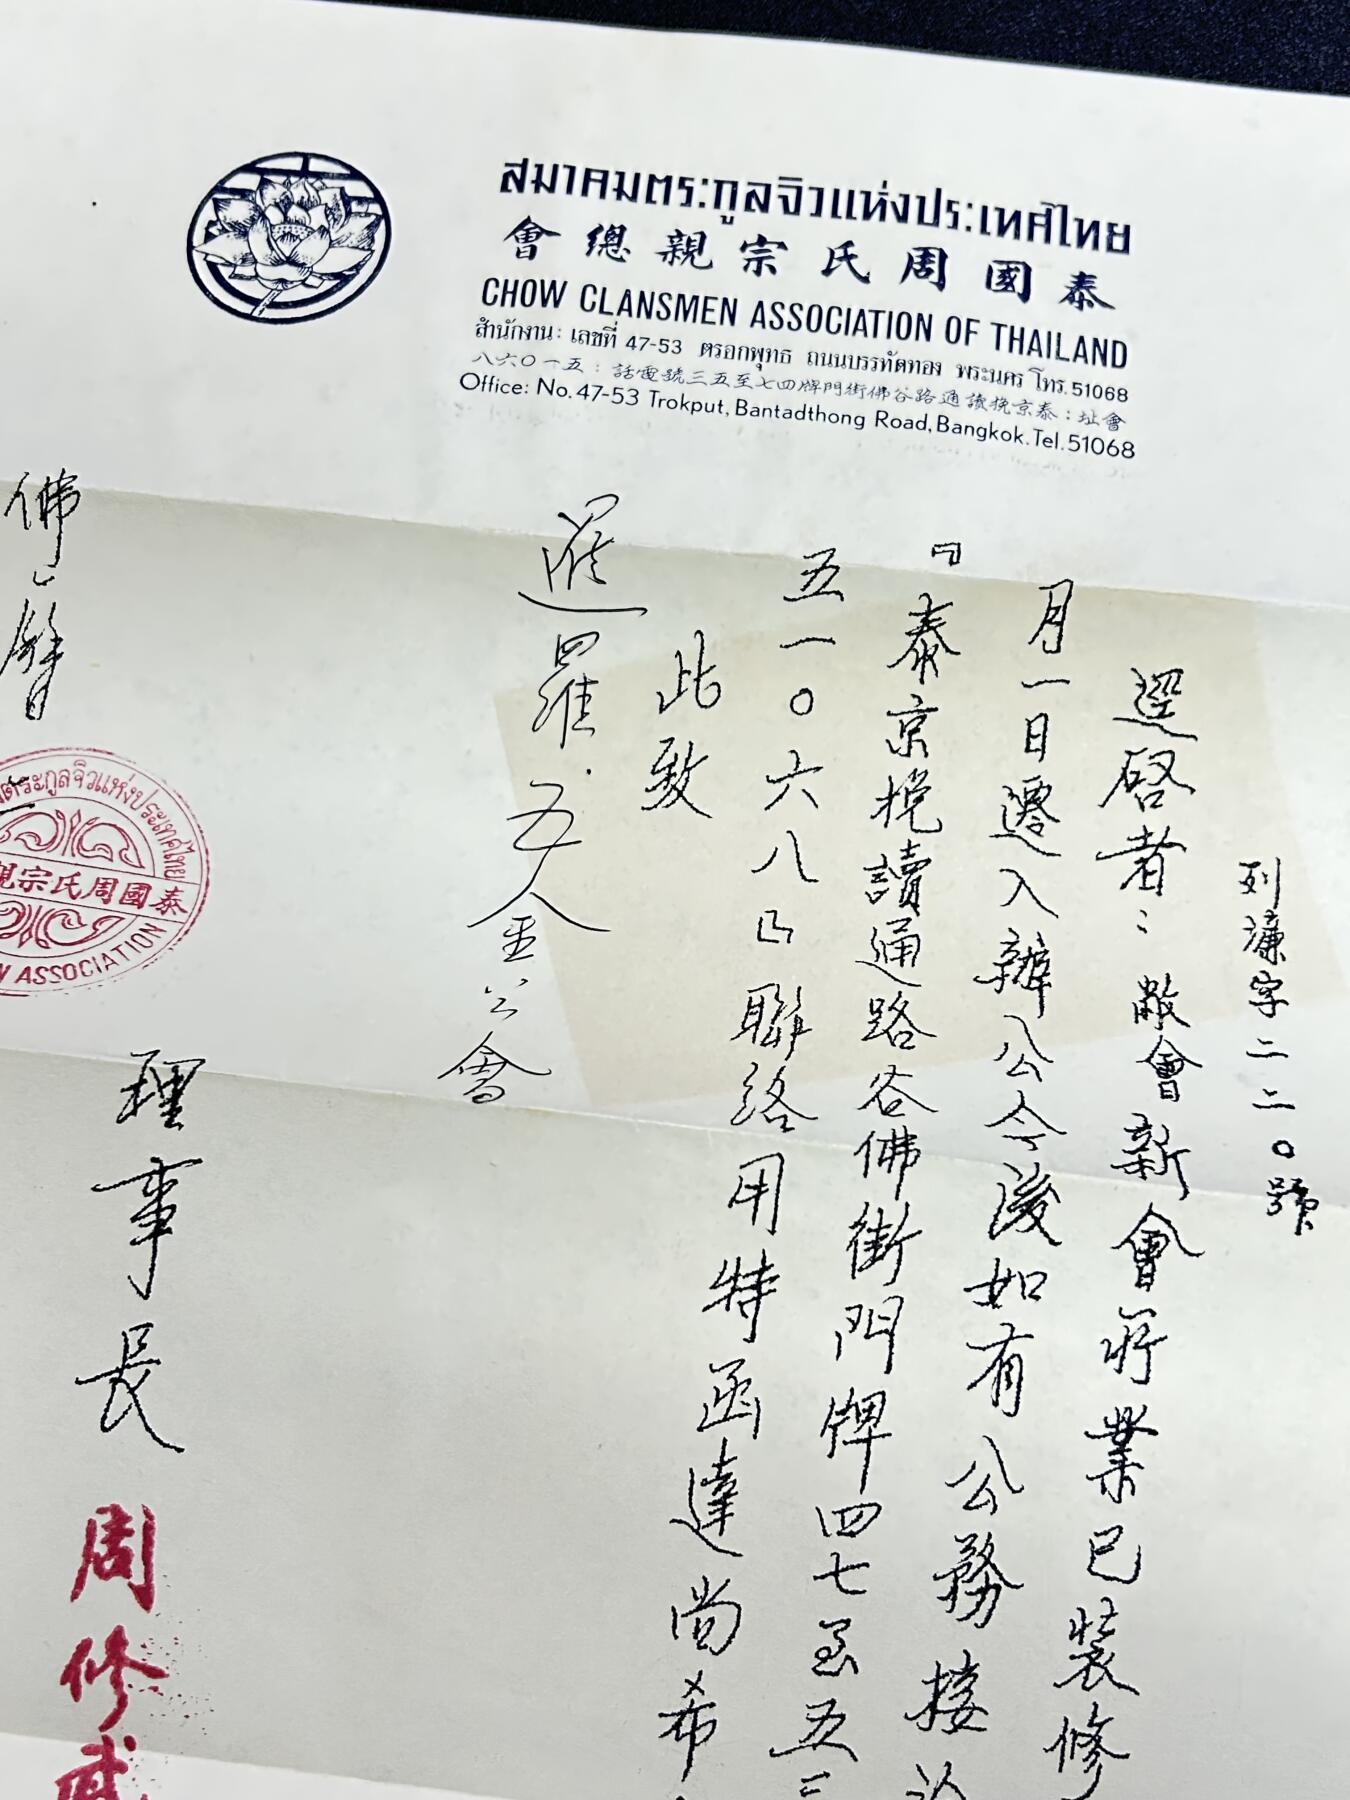 สมาคมตระกูลจิวแห่งประเทศไทย
會總親宗氏周國泰
CHOW CLANSMEN ASSOCIATION OF THAILAND
สำนักงาน: เลขที่ 47-53 ตรอกพุทธ ถนนบรรทัดทอง พระนคร โทร. 51068
八六〇一五：話電號三五至七四牌門街佛谷路通讀挽京泰：址會
Office: No. 47-53 Trokput, Bantadthong Road, Bangkok. Tel. 51068
列濂字二二〇號
逕啓者：敝會新會所業已裝修
月一日遷入辦公今後如有公務接洽
『泰京挽讀通路谷佛街門牌四七至五三
五一〇六八』聯絡用特函達尚希
此致
暹羅五金公會
理事長
周修
佛
ตระกูลจิวแห่งประเทศไทย
親宗氏周國泰
ASSOCIATION